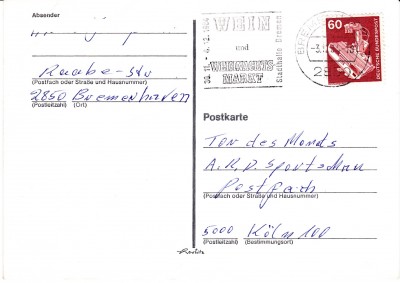 Absender
Raabe-Str
(Postfach oder Straße und Hausnummer)
2850 Bremerhaven
(Postleitzahl) (Ort)
30.11. - 6.12.
WEIN
und
WEIHNACHTS
MARKT
Stadthalle Bremen
60
DEUTSCHE BUNDESPOST
Postkarte
Tor des Monats
A.R.D. Sportschau
Postfach
(Postfach oder Straße und Hausnummer)
5000 Köln 100
(Postleitzahl) (Bestimmungsort)